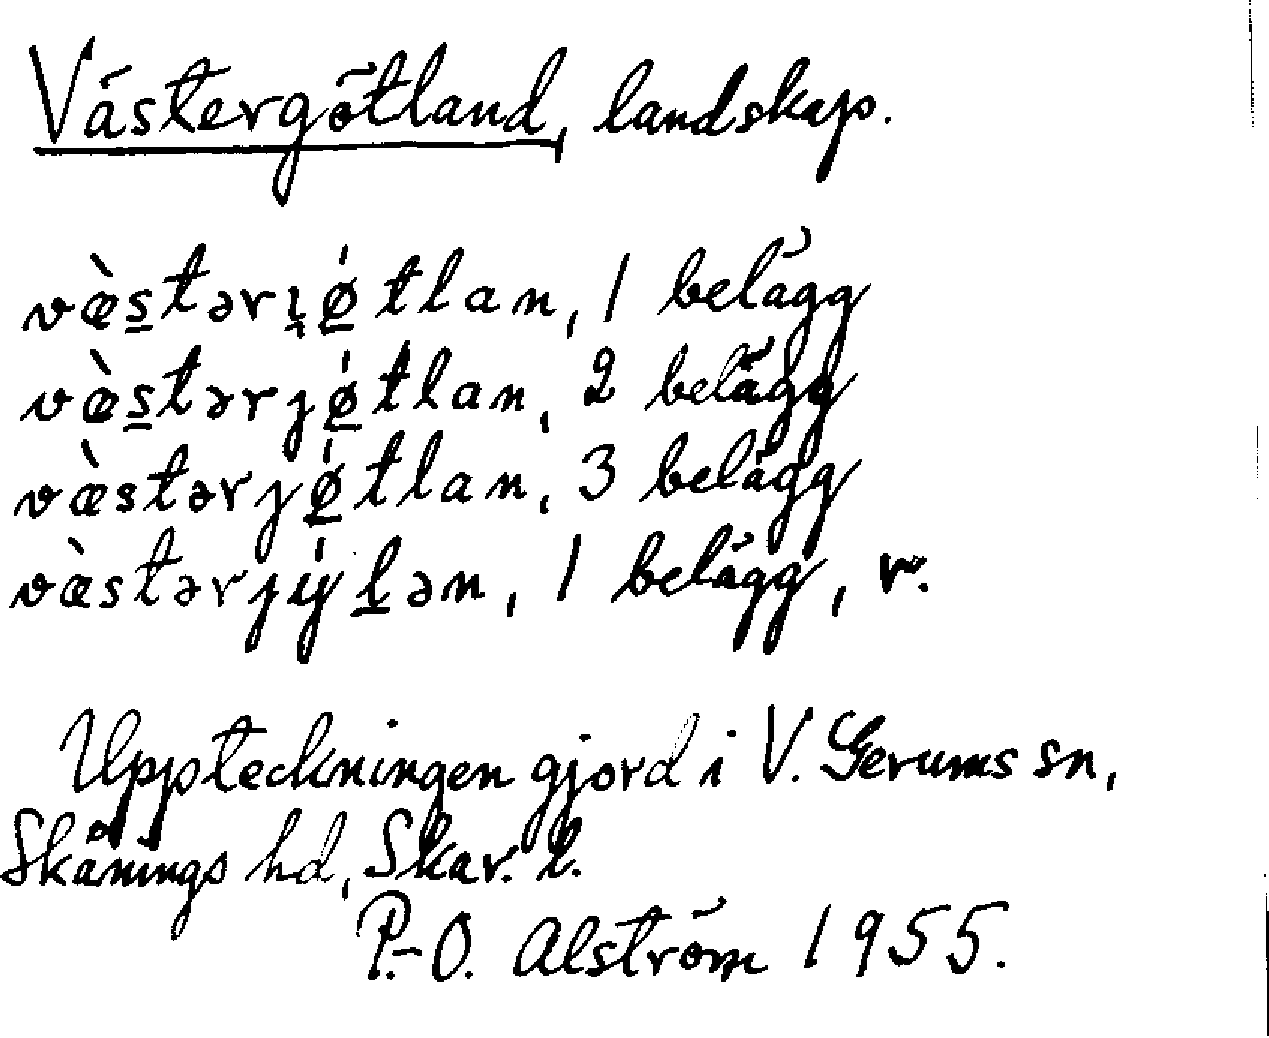 Västergötland, landskap.
væ̀s̲tərı̨ǿ̲tlan, 1 belägg
væ̀s̲tərjǿ̲tlan, 2 belägg
væ̀stərjǿ̲tlan, 3 belägg
væ̀stərjýl̲ən, 1 belägg, r.
Uppteckningen gjord i V. Gerums sn,
Skånings hd, Skar. l.
P.-O. Alström 1955.